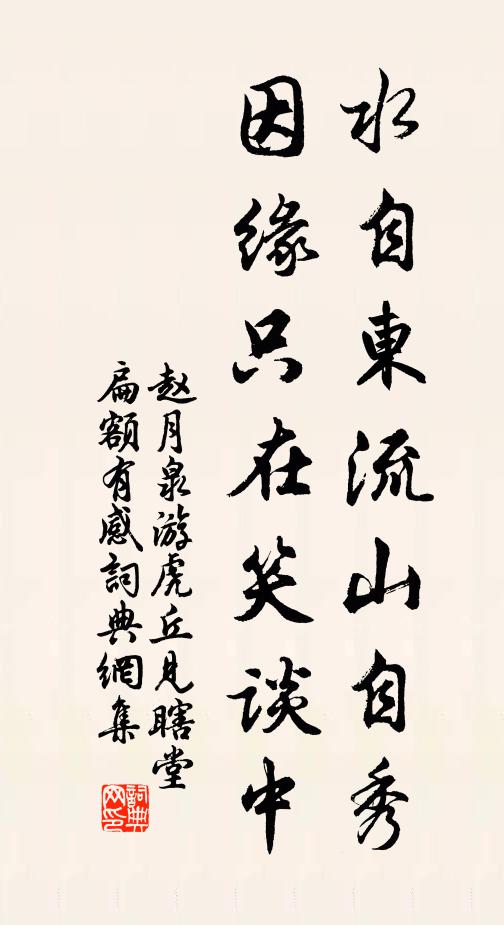 水自東流山自秀
因緣只在笑談中
赵月泉游虎丘見瞎堂
扁額有感詞典網集
詞典网印